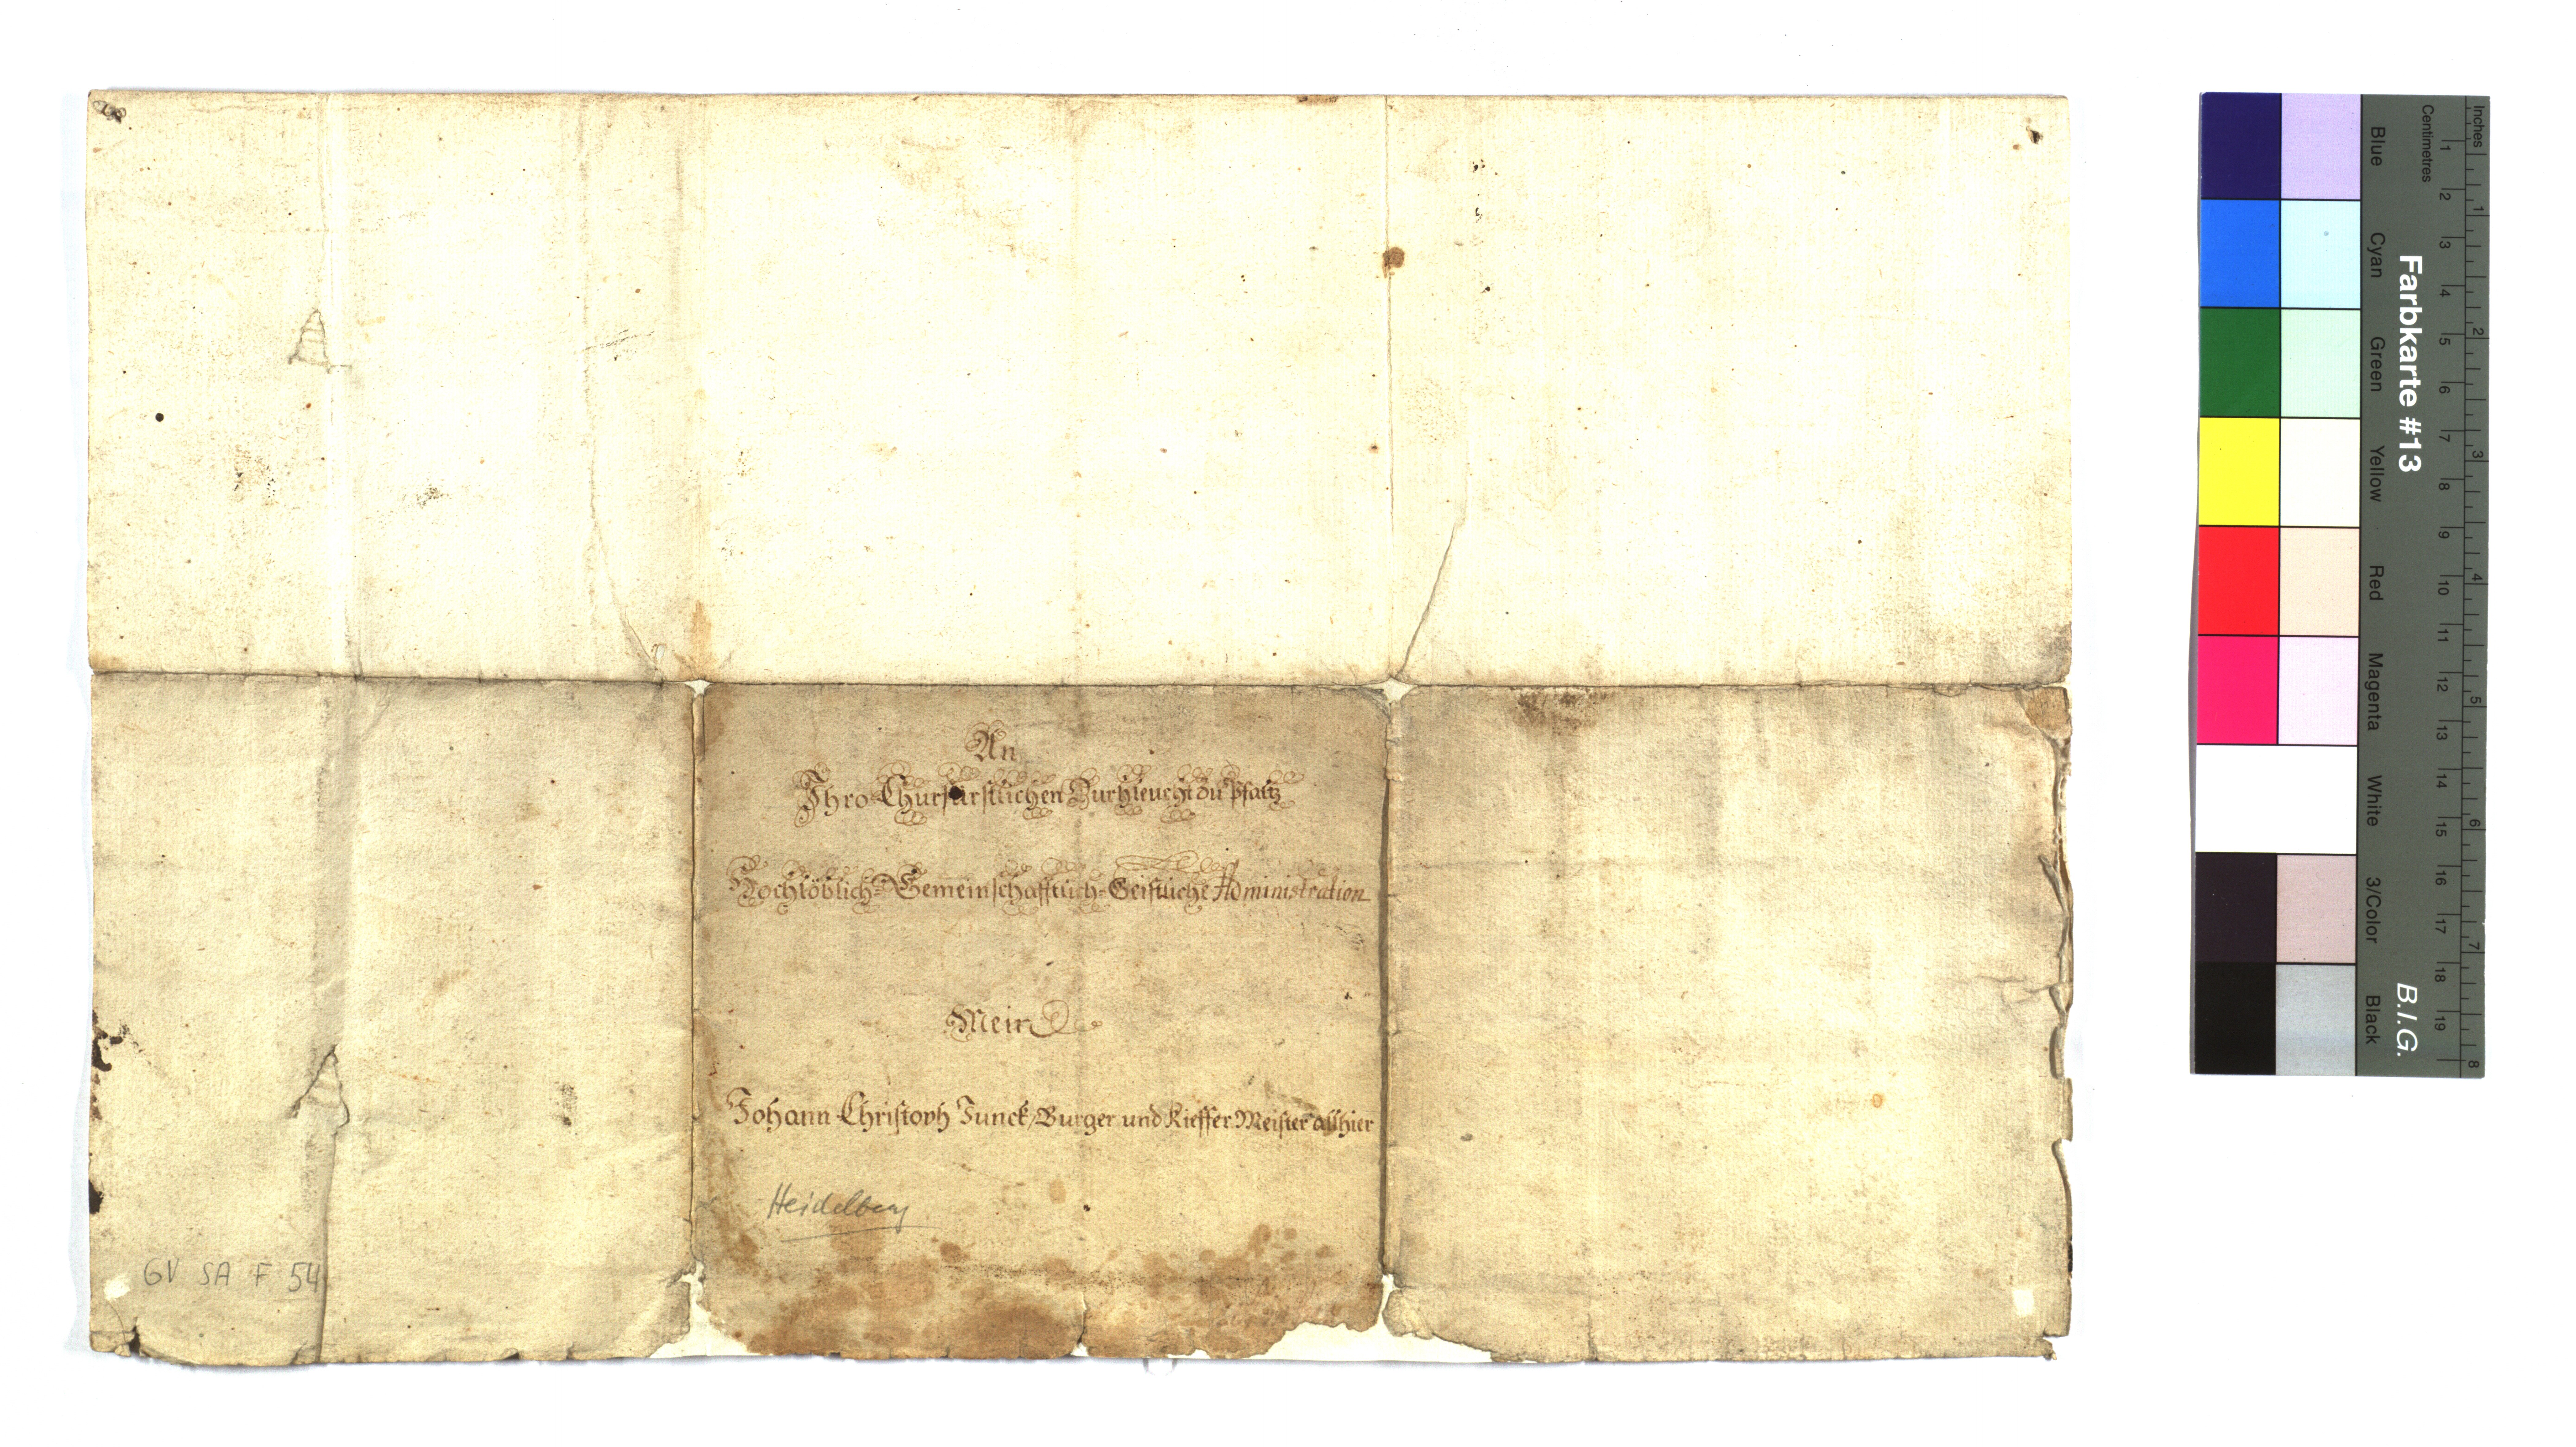 An
Ihro Churfürstlichen Durhleucht zu Pfaltz
Hochlöblich-Gemeinschafftlich-Geistliche Administration
Mein
Johann Christoph Junck/Burger und Kieffer Meister allhier
Heidelberg
GV SA F 54
Inches
Centimetres
Farbkarte #13
B.I.G.
Blue
Cyan
Green
Yellow
Red
Magenta
White
3/Color
Black
1 2 3 4 5 6 7 8 9 10 11 12 13 14 15 16 17 18 19
1 2 3 4 5 6 7 8